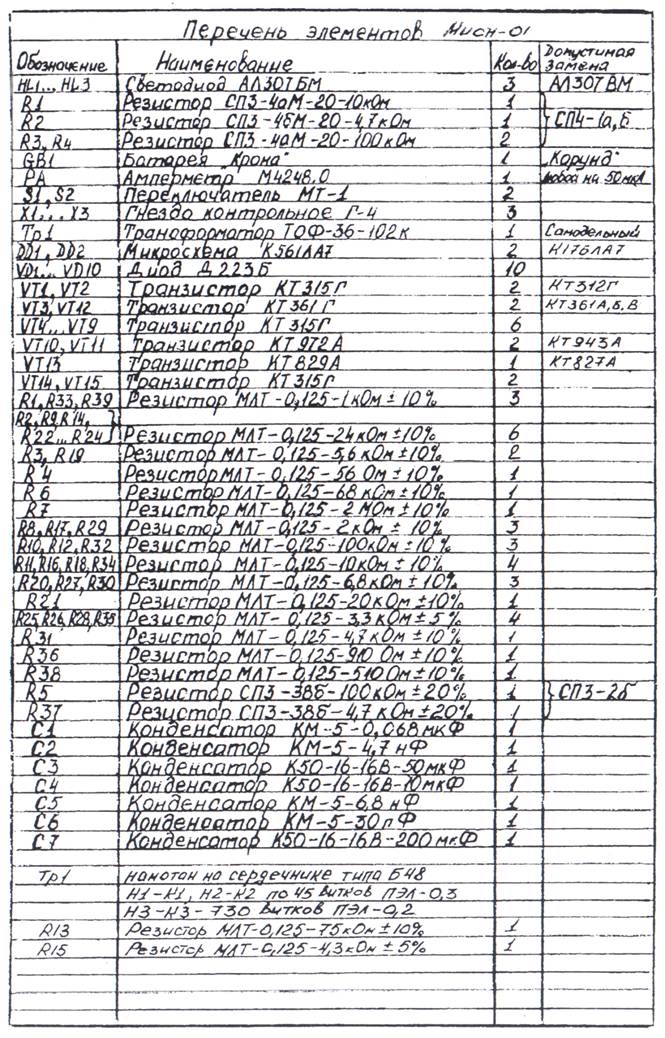 Перечень элементов Мисн-01
Обозначение Наименование Кол-во Допустимая замена
HL1...HL3 Светодиод АЛ307БМ 3 АЛ307ВМ
R1 Резистор СП3-4аМ-20-10кОм 1
R2 Резистор СП3-4бМ-20-4,7кОм 1 СП4-1а,б
R3, R4 Резистор СП3-4аМ-20-100кОм 2
GB1 Батарея „Крона" 1 „Корунд"
PA Амперметр М4248.0 1 любой на 50мкА
S1, S2 Переключатель МТ-1 2
X1...X3 Гнездо контрольное Г-4 3
Тр1 Трансформатор ТОФ-36-102к 1 Самодельный
DD1, DD2 Микросхема К561ЛА7 2 К176ЛА7
VD1...VD10 Диод Д223Б 10
VT1, VT2 Транзистор КТ315Г 2 КТ312Г
VT3, VT12 Транзистор КТ361Г 2 КТ361А,Б,В
VT4...VT9 Транзистор КТ315Г 6
VT10, VT11 Транзистор КТ972А 2 КТ943А
VT13 Транзистор КТ829А 1 КТ827А
VT14, VT15 Транзистор КТ315Г 2
R1, R33, R39 Резистор МЛТ-0,125-1кОм±10% 3
R2, R9, R14,
R22...R24 Резистор МЛТ-0,125-24кОм±10% 6
R3, R19 Резистор МЛТ-0,125-5,6кОм±10% 2
R4 Резистор МЛТ-0,125-56 Ом±10% 1
R6 Резистор МЛТ-0,125-68 кОм±10% 1
R7 Резистор МЛТ-0,125-2 МОм±10% 1
R8, R17, R29 Резистор МЛТ-0,125-2кОм ± 10% 3
R10, R12, R32 Резистор МЛТ-0,125-100кОм±10% 3
R11, R16, R18, R34 Резистор МЛТ-0,125-10кОм±10% 4
R20, R27, R30 Резистор МЛТ-0,125-6,8кОм±10% 3
R21 Резистор МЛТ-0,125-20кОм±10% 1
R25, R26, R28, R35 Резистор МЛТ-0,125-3,3кОм±5% 4
R31 Резистор МЛТ-0,125-4,7кОм±10% 1
R36 Резистор МЛТ-0,125-910 Ом±10% 1
R38 Резистор МЛТ-0,125-510 Ом±10% 1
R5 Резистор СП3-38б-100кОм±20% 1 СП3-2б
R37 Резистор СП3-38б-4,7 кОм±20% 1
C1 Конденсатор КМ-5-0,068мкФ 1
C2 Конденсатор КМ-5-4,7нФ 1
C3 Конденсатор К50-16-16В-50мкФ 1
C4 Конденсатор К50-16-16В-10мкФ 1
C5 Конденсатор КМ-5-6,8 нФ 1
C6 Конденсатор КМ-5-30пФ 1
C7 Конденсатор К50-16-16В-200мкФ 1
Тр1 намотан на сердечнике типа Б48
Н1-К1, Н2-К2 по 45 витков ПЭЛ-0,3
Н3-К3-730 витков ПЭЛ-0,2
R13 Резистор МЛТ-0,125-75кОм±10% 1
R15 Резистор МЛТ-0,125-4,3кОм±5% 1